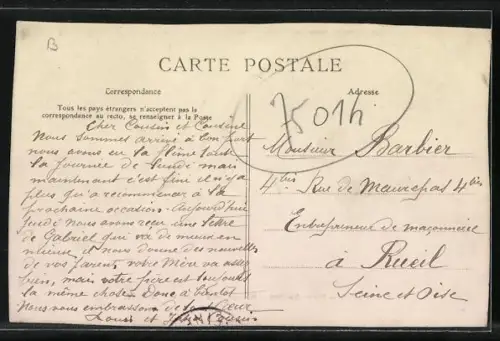 B
CARTE POSTALE
Correspondance
Tous les pays étrangers n'acceptent pas la
correspondance au recto, se renseigner à la Poste
Cher Cousin et Cousine
Nous sommes arrivé à bon port
nous avons eu la flême toute
la journée de Lundi mais
maintenant c'est fini il n'y a
plus qu'a recommencer à la
prochaine occasion. Aujourd'hui
Jeudi Nous avons reçu une lettre
de Gabriel qui va de mieux en
mieux et nous donne des nouvelles
de vos parents votre Mère va assez
bien, mais votre frère est toujours
la même chose. Donc à bientôt
Nous vous embrassons de tout Cœur
Louis et Cousin
Adresse
75014
Monsieur Barbier
4 bis Rue de Maurepas 4 bis
Entrepreneur de maçonnerie
à Rueil
Seine et Oise